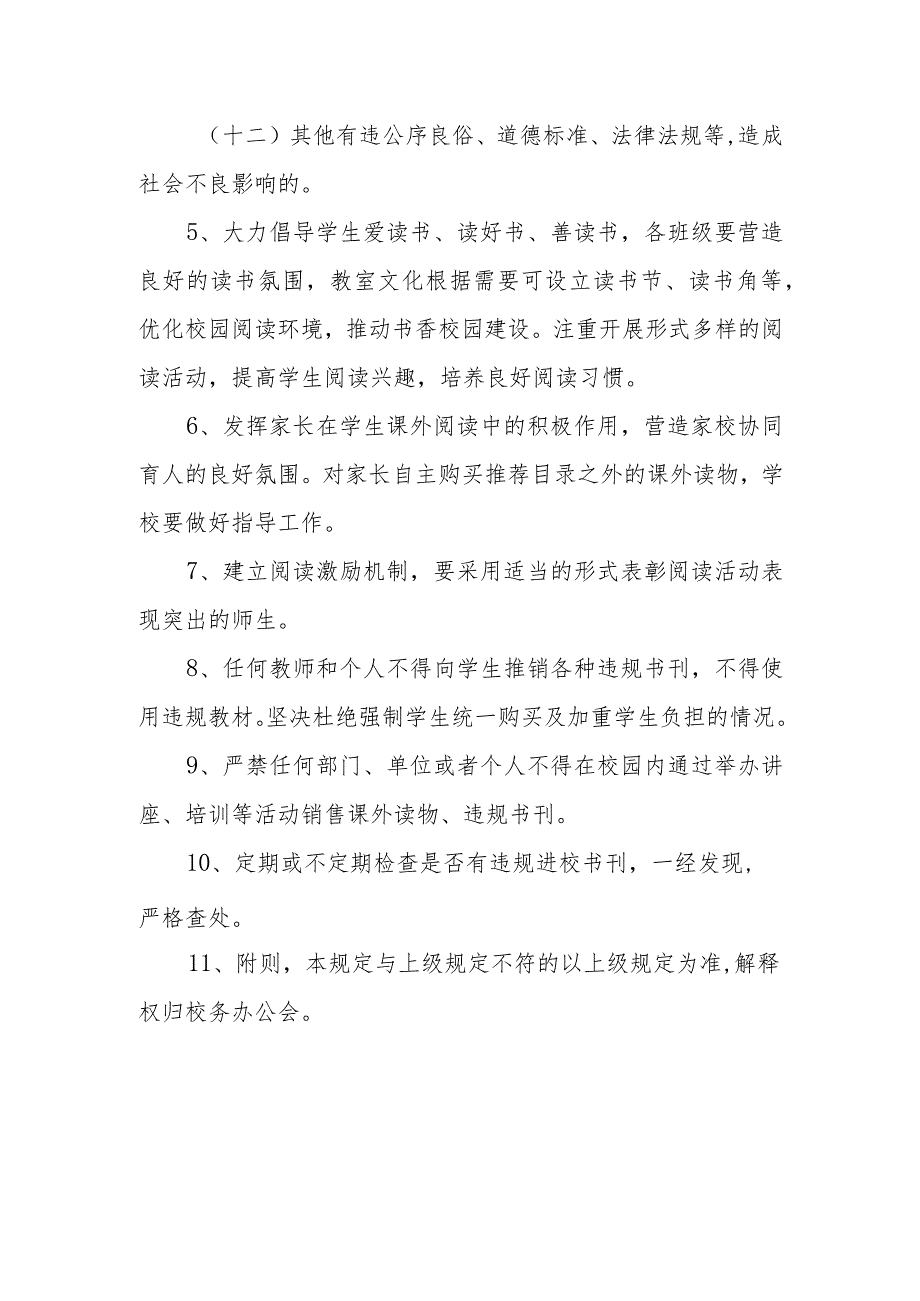 （十二）其他有违公序良俗、道德标准、法律法规等,造成
社会不良影响的。
5、大力倡导学生爱读书、读好书、善读书，各班级要营造
良好的读书氛围，教室文化根据需要可设立读书节、读书角等，
优化校园阅读环境，推动书香校园建设。注重开展形式多样的阅
读活动，提高学生阅读兴趣，培养良好阅读习惯。
6、发挥家长在学生课外阅读中的积极作用，营造家校协同
育人的良好氛围。对家长自主购买推荐目录之外的课外读物，学
校要做好指导工作。
7、建立阅读激励机制，要采用适当的形式表彰阅读活动表
现突出的师生。
8、任何教师和个人不得向学生推销各种违规书刊，不得使
用违规教材。坚决杜绝强制学生统一购买及加重学生负担的情况。
9、严禁任何部门、单位或者个人不得在校园内通过举办讲
座、培训等活动销售课外读物、违规书刊。
10、定期或不定期检查是否有违规进校书刊，一经发现，
严格查处。
11、附则，本规定与上级规定不符的以上级规定为准,解释
权归校务办公会。